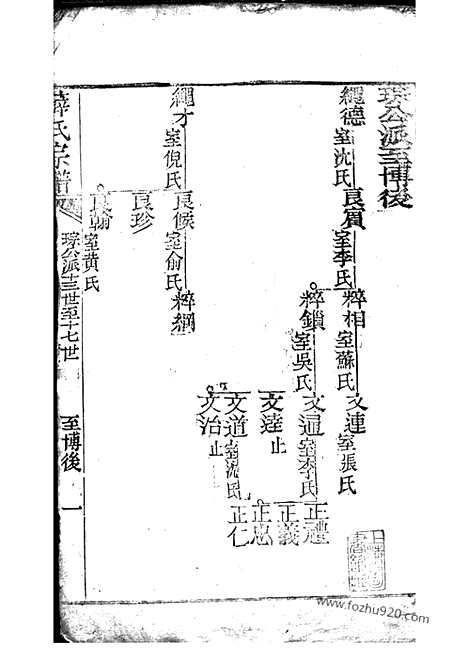 琮公派至博後
繩德 室沈氏
良賓 室李氏
粹相 室蘇氏
文連 室張氏
粹鎖 室吳氏
文通 室李氏
正禮
正義
文逵 止
正忠
文道 室沈氏
正仁
文治 止
繩才 室倪氏
良候 室俞氏
粹綱
良珍
良翰 室黄氏
薛氏宗譜
琮公派十三世至十七世
至博後
一
www.fozhu920.com